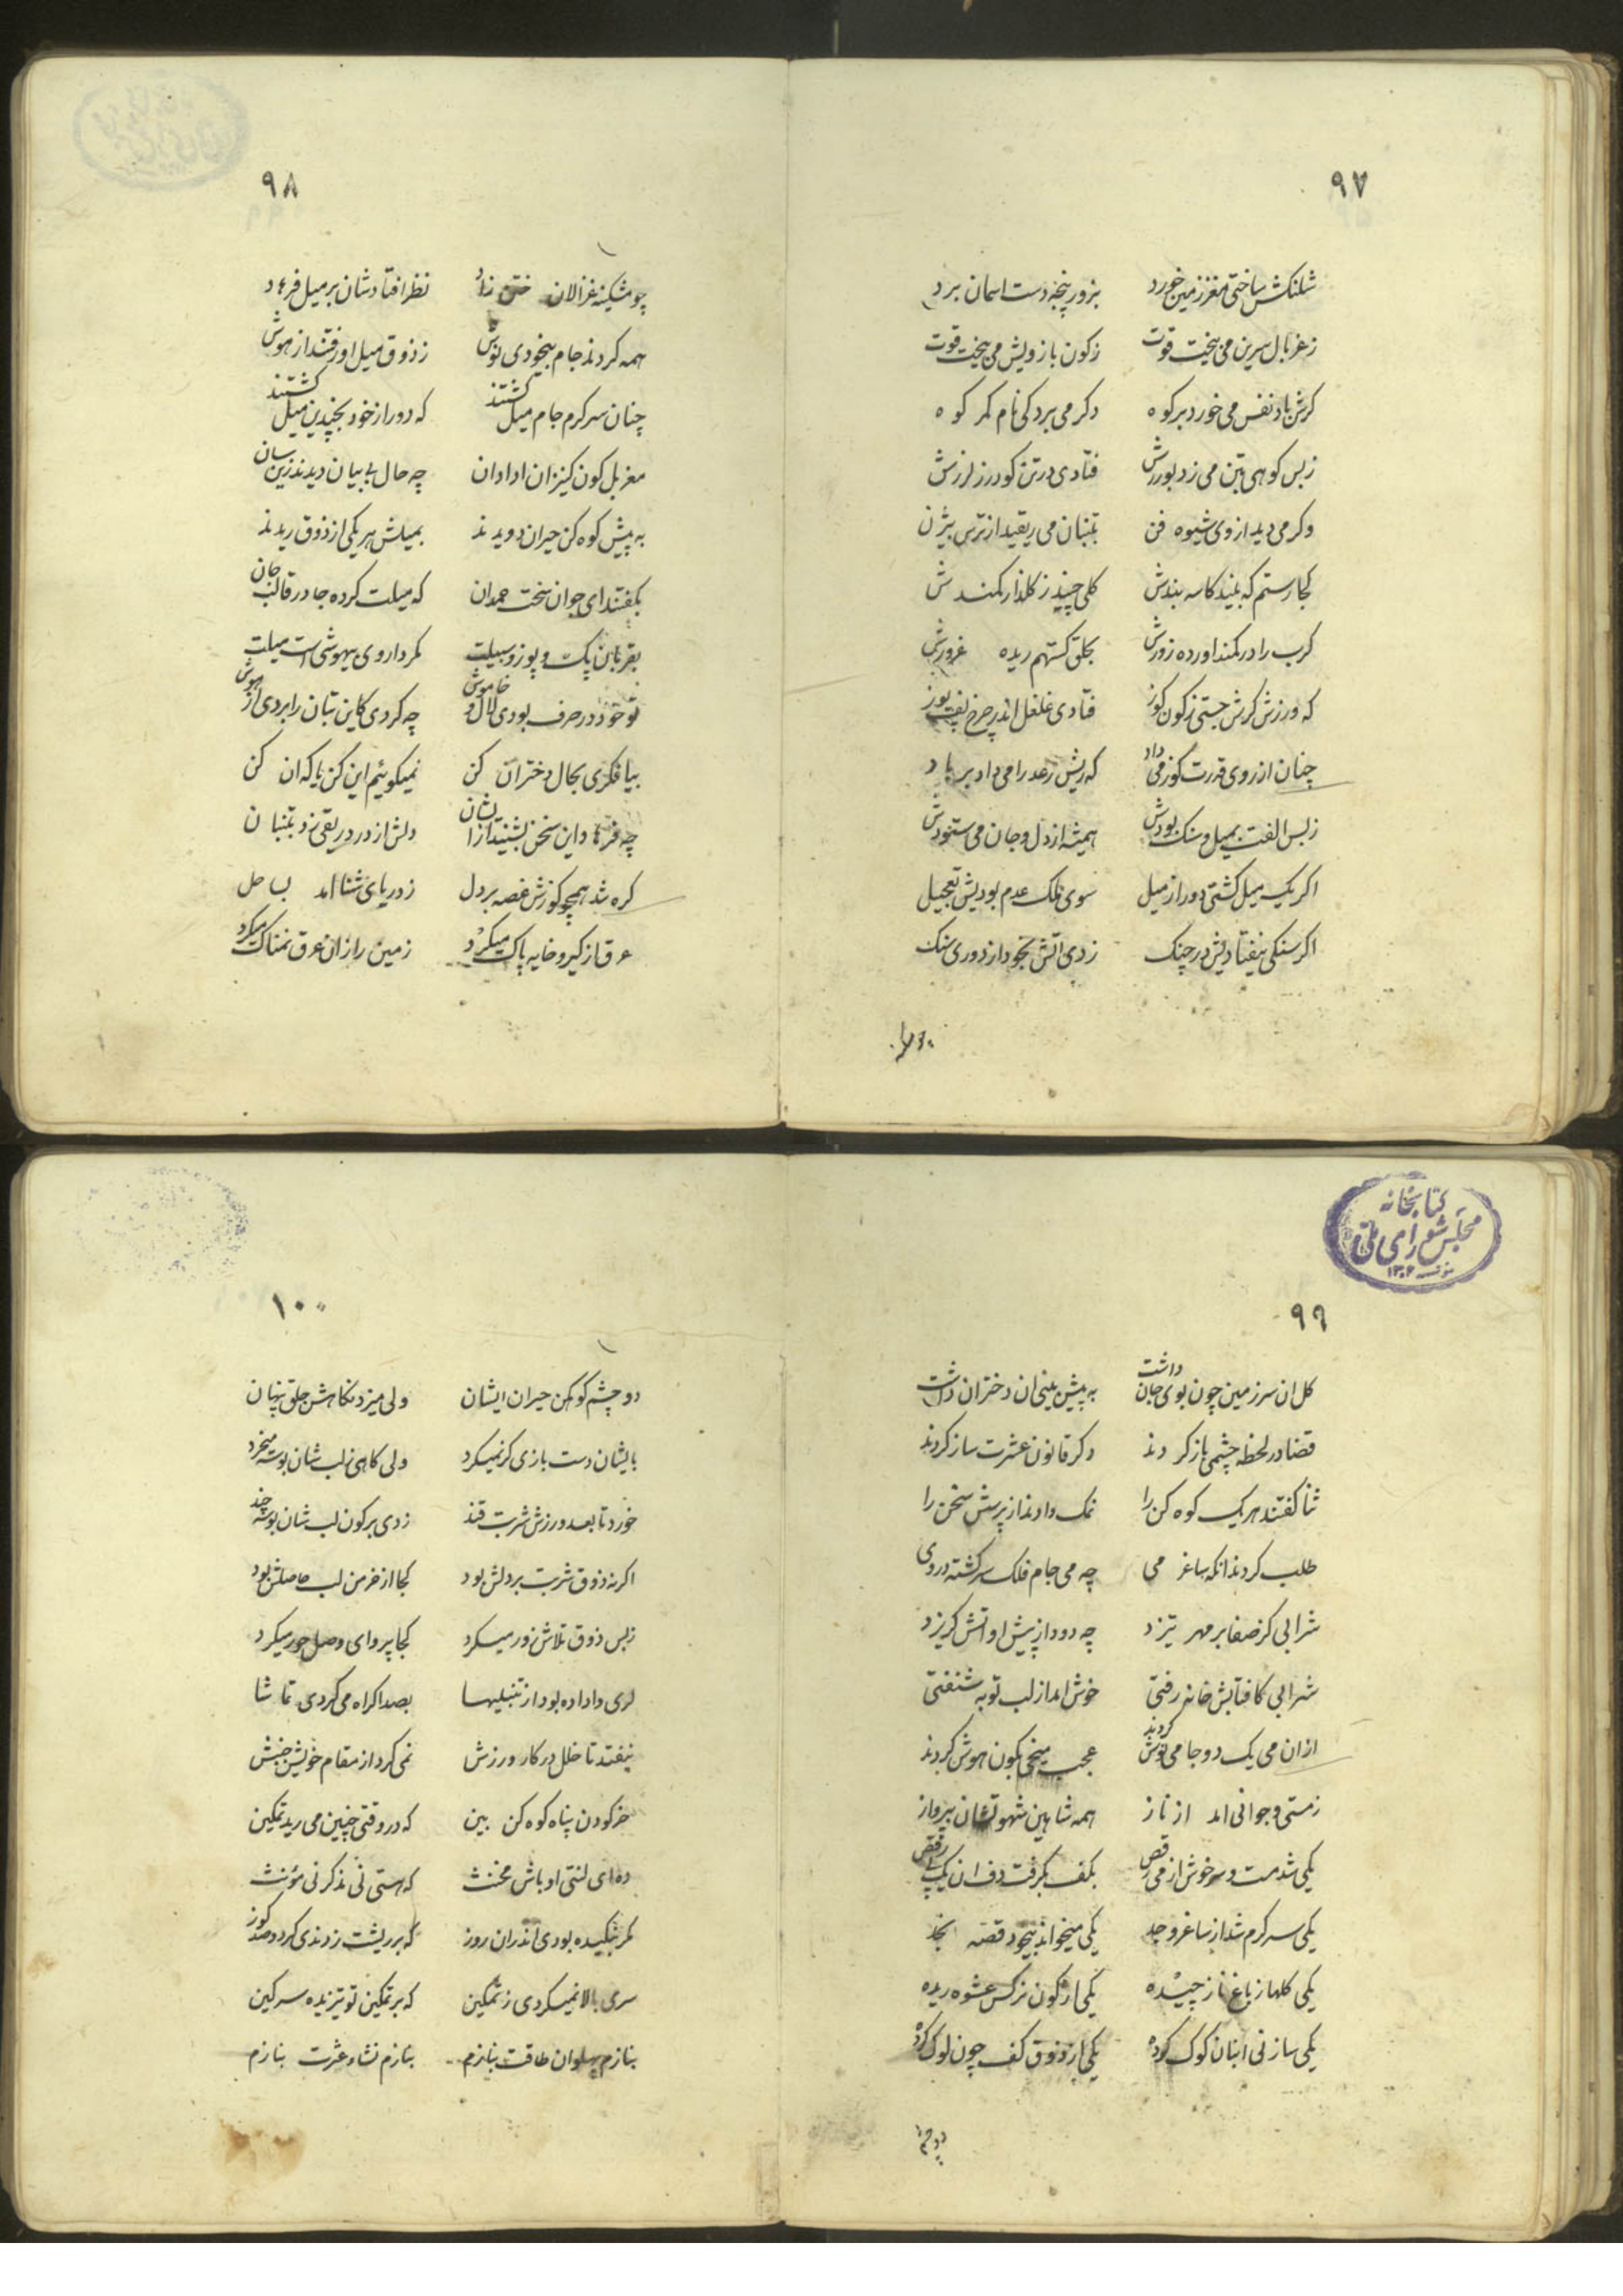 ۹۷
شلنکش ساختی مغز زمین خورد بزور پنجه دست اسمان برد
زغربال سرین می بیخت قوت زکون بازویش می بیخت قوت
کرش باد نفس می خورد بر کوه دکر می برد کی نام کمر کوه
زبس کوهی بتن می زد بورزش فتادی در تن کودرز لرزش
وکر می دید از وی شیوه فن بتنبان می ریقید از ترس بیژن
کجا رستم که بیند کاسه بندش کلی چیند ز کلذار کمندش
کرب را در کمند اورده زورش بحلق کستهم ریده غرورش
که ورزش کرش جستی ز کون کوز فتادی غلغل اندر چرخ
چنان از روی قدرت کوز می داد که ریش رعد را می داد بر باد
زبس الفت بمیل و سنک بودش همیشه از دل و جان می ستودش
اکر یک میل کشتی دور از میل سوی ملک عدم بودیش تعجیل
اکر سنکی نیفتادیش در چنک زدی اتش بخود از دوری سنک
۹۸
چو مشکینه غزالان ختن زاد نظر افتادشان بر میل فرهاد
همه کردند جام بیخودی نوش ز ذوق میل او رفتند از هوش
چنان سرکرم جام میل کشتند که دور از خود بچندین میل کشتند
مغربل کون کنیزان ادادان چه حال بی بیان دیدند زین سان
به پیش کوه کن حیران دویدند بمیلش هر یکی از ذوق ریدند
بکفتند ای جوان سخت همدان که میلت کرده جا در قالب جان
بقربان پک و پوز و سبیلت مکر داروی بیهوشی است میلت
تو خود در حرف بودی لال و خاموش چه کردی کاین بتان را بردی از هوش
بیا فکری بحال دختران کن نمیکوئیم این کن یا که ان کن
چه فرهاد این سخن بشنید از ایشان دلش از درد ریقی زد بتنبان
کره شد همچو کوزش غصه بر دل ز دریای شنا امد بساحل
عرق از کیر و خایه پاک میکرد زمین را زان عرق نمناک میکرد
۹۹
کل ان سرزمین چون بوی جان داشت به پیش بینی ان دختران داشت
قضا در لحظه چشمی باز کردند دکر قانون عشرت ساز کردند
ثنا کفتند هر یک کوه کن را نمک دادند از پرسش سخن را
طلب کردند انکه ساغر می چه می جام فلک سرکشته در وی
شرابی کز صفا بر مهر تیزد چه دود از پیش او اتش کریزد
شرابی کافتابش خانه رفتی خوش امد از لب توبه شنفتی
از ان می یک دو جامی نوش کردند عجب میخی بکون هوش کردند
زمستی و جوانی امد از ناز همه شاهین شهوتشان بپرواز
یکی شد مست و سرخوش از می رقص بکف بکرفت دف ان یک پی رقص
یکی سرکرم شد از ساغر وجد یکی میخواند بیخود قصه نجد
یکی کلها ز باغ ناز چیده یکی از کون نرکس عشوه ریده
یکی ساز نی انبان کوک کرده یکی از ذوق کف چون لوک کرده
۱۰۰
دو چشم کوه کن حیران ایشان ولی میزد نکاهش جلق پنهان
بایشان دست بازی کر نمیکرد ولی کاهی ز لب شان بوسه میخرد
خورد تا بعد ورزش شربت قند زدی بر کون لب شان بوسه چند
اکر نه ذوق شربت بر دلش بود کجا از خرمن لب حاصلش بود
زبس ذوق تلاش زور میکرد کجا پروای وصل حور میکرد
لری وا داده بود از تنبلیها بصد اکراه می کردی تماشا
نیفتد تا خلل در کار ورزش نمی کرد از مقام خویش جنبش
خر کودن پناه کوه کن بین که در وقتی چنین می رید تمکین
ده ای لنتی اوباش مخنث که هستی نی مذکر نی مؤنث
مکر بنکیده بودی اندران روز که بر ریشت زدندی کرد و صد کوز
سری بالا نمیکردی ز تمکین که بر تمکین تو تیزیده سرکین
بنازم پهلوان طاقت بنازم بنازم نشاء عشرت بنازم
کتابخانه
مجلس شورای ملی
۱۳۰۲